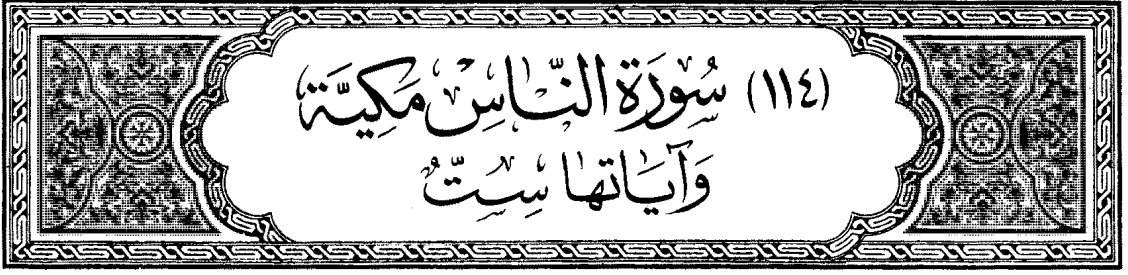 (١١٤) سُورَةُ النَّاسِ مَكِيَّة
وَآيَاتهَا سِتٌّ